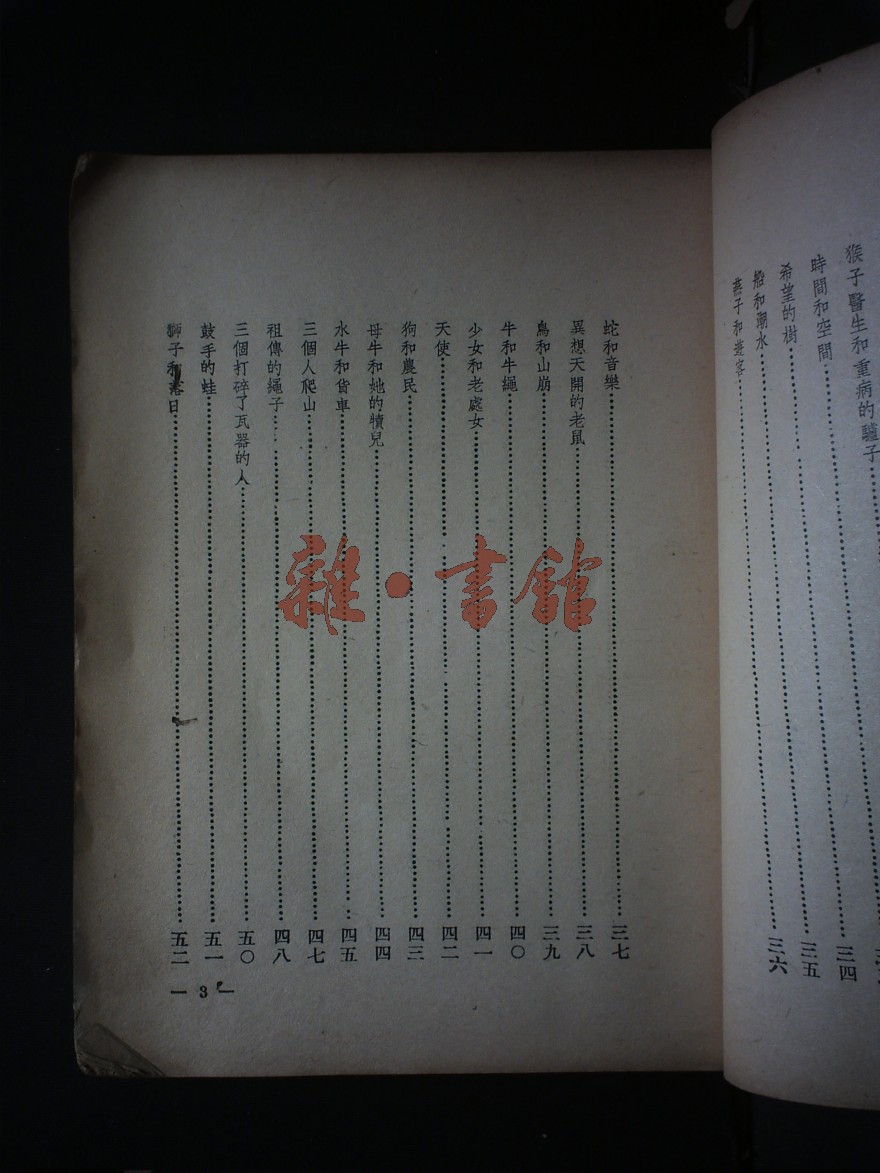 猴子醫生和重病的驢子
時間和空間
希望的樹……三四
船和潮水……三五
燕子和遊客……三六
蛇和音樂……三七
異想天開的老鼠……三八
鳥和山崩……三九
牛和牛繩……四〇
少女和老處女……四一
天使……四二
狗和農民……四三
母牛和她的犢兒……四四
水牛和貨車……四五
三個人爬山……四七
祖傳的繩子……四八
三個打碎了瓦器的人……五〇
鼓手的蛙……五一
獅子和落日……五二
— 3 —
雜·書館